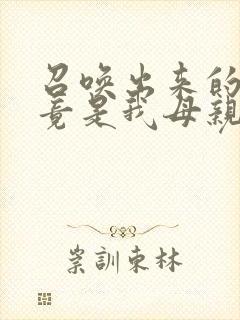 召唤出来的
竟是我母親
崇訓東林